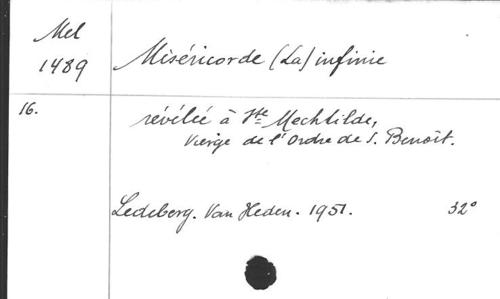 Mel
1489
Miséricorde (La) infinie
16.
révélée à Ste Mechtilde,
Vierge de l'Ordre de S. Benoît.
Ledeberg. Van Heden. 1951. 32°